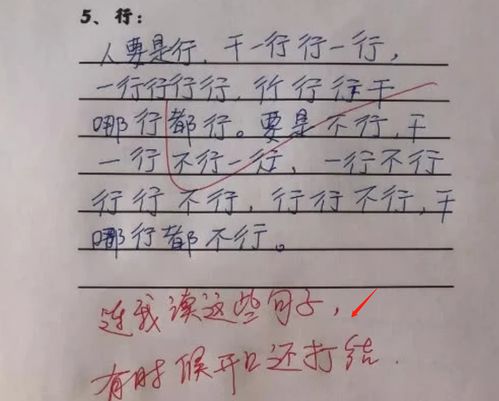 5、行：
人要是行，干一行行一行，
一行行行行，行行行干
哪行都行。要是不行，干
一行不行一行，一行不行
行行不行，行行不行，干
哪行都不行。
连我读这些句子，
有时候开口还打结．